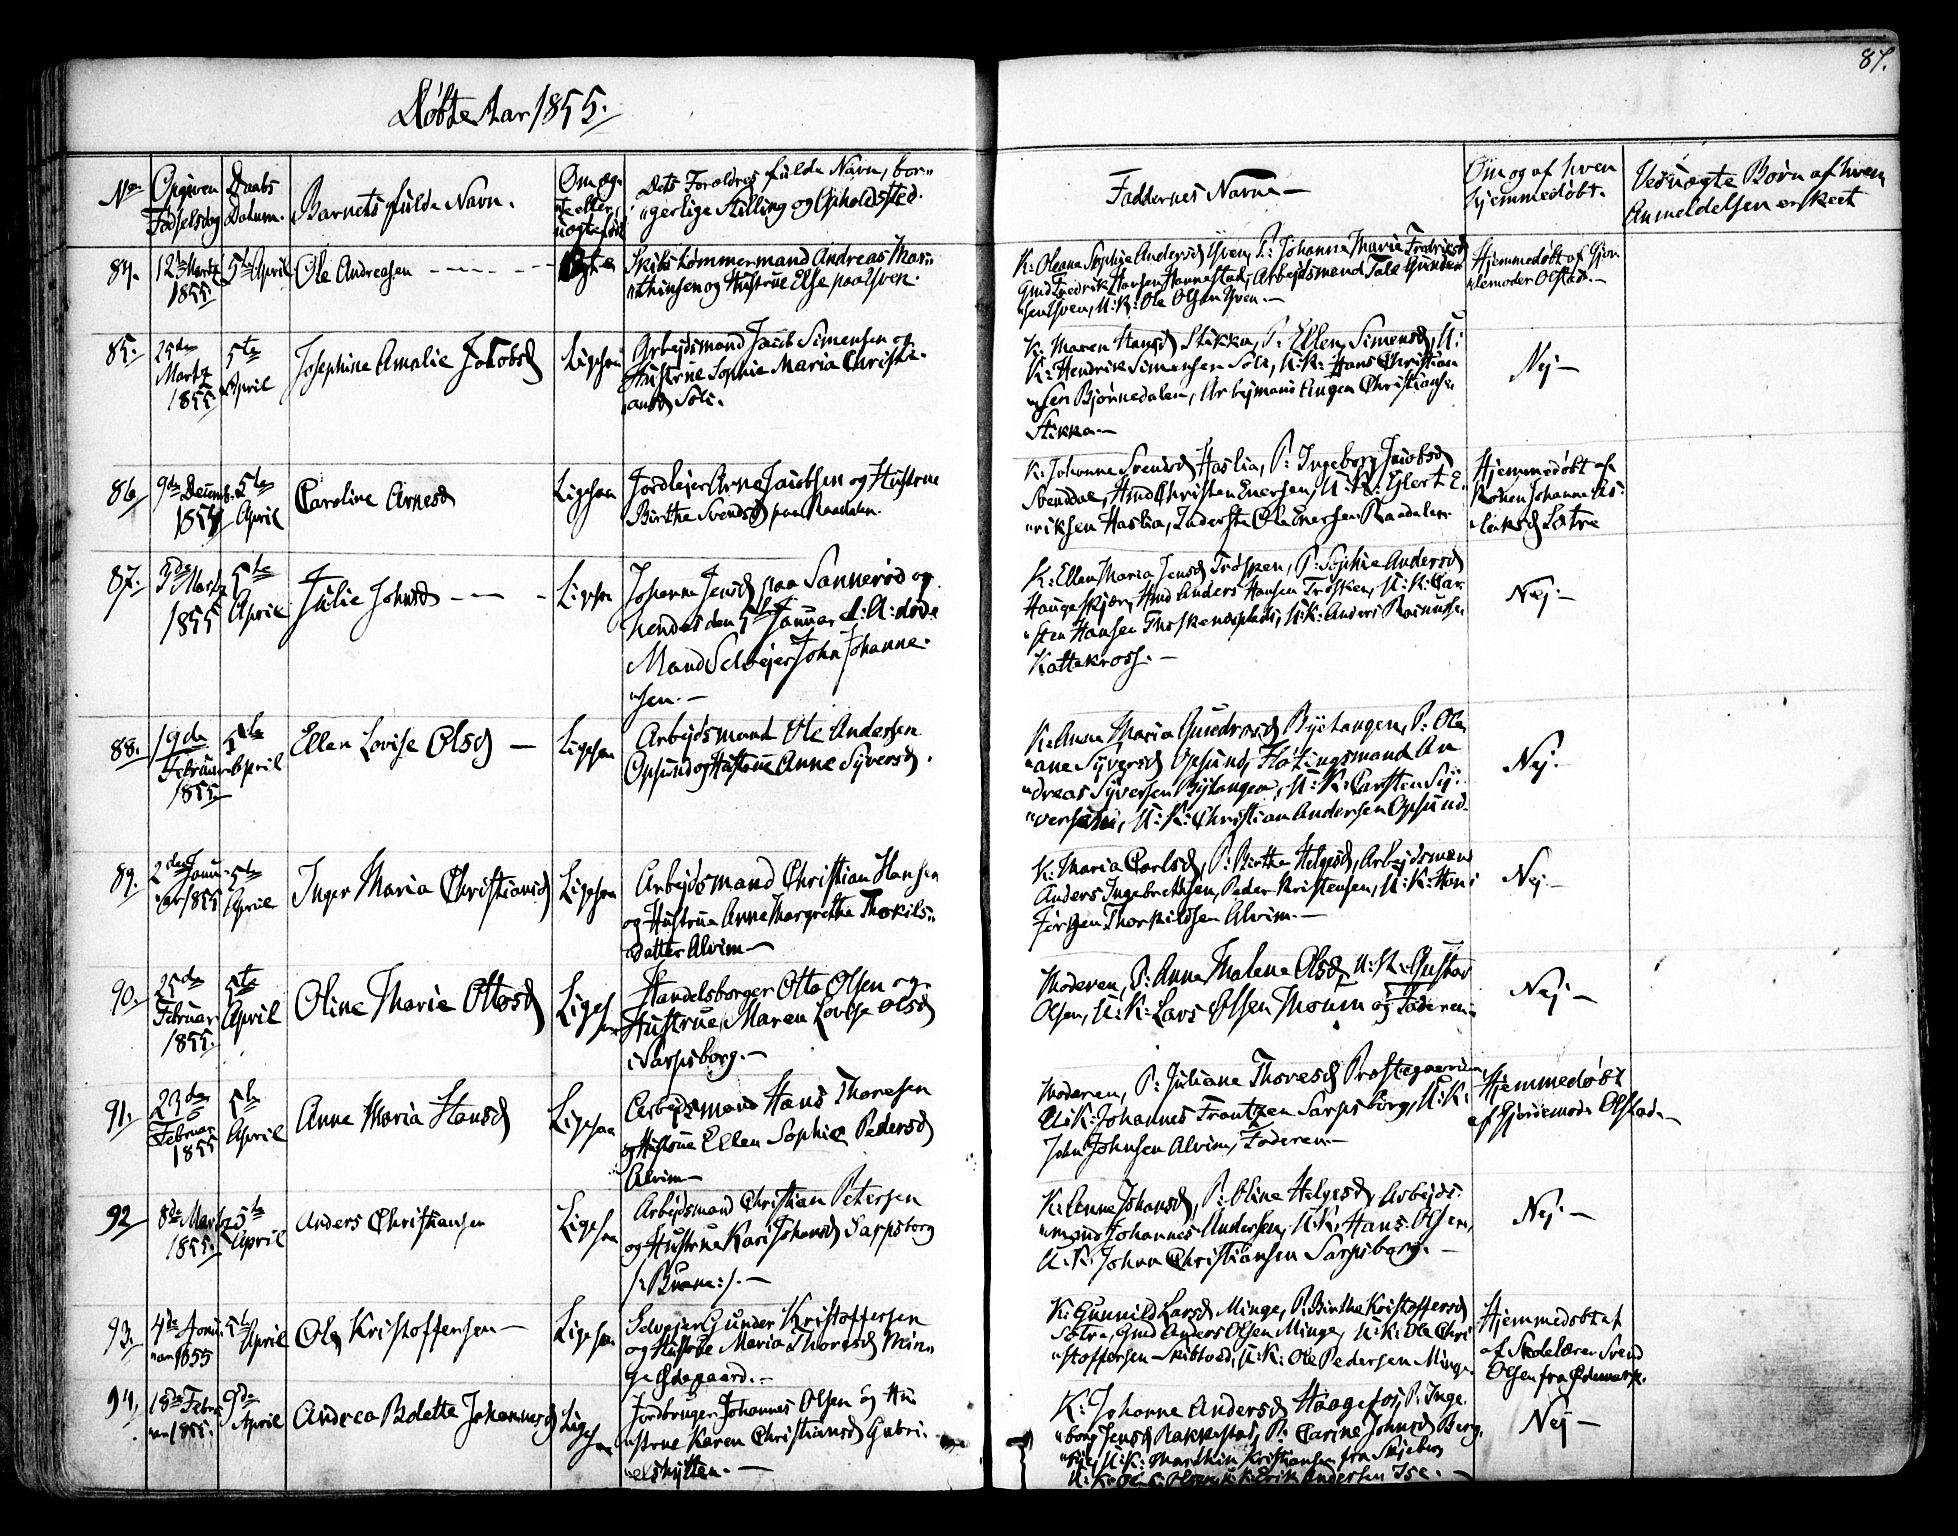 Døbte Aar 1855.
87.
No
Opgiven Fødselsdag
Daabs Datum.
Barnets fulde Navn.
Om ægte eller uægte født
Dets Forældres fulde Navn, bor-
"gerlige Stilling og Opholdsted.
Faddernes Navne
Om og af hven
hjemmedøbt.
Veduægte Børn af hvem
Anmeldelsen er skeet
84.
12te Martz
1855
5te April
Ole Andreasen
Ægte
Skibstømmermand Andreas Mar-
"thinsen og Hustrue Else paa Yven.
K: Oleane Sophie Andersd Yven, P: Johanne Marie Fredriksd
Gmd Fredrik Hansen Hannestad, Arbejdsmend Tale Gunder
"sen Yven, U: K: Ole Olsen Yven.
Hjemmedøbt af Gjor
"demoder Olstad.
85.
25de
Martz
1855
5te
April
Josephine Amalie Jakobsd
Ligesaa
Arbejdsmand Jacob Simensen og
Hustrue Sophie Maria Christi-
"ansd Soli.
K: Maren Hansd Stikka, P: Ellen Simensd, U:
K: Hendrik Simensen Soli, U: K: Hans Christian
"sen Bjørnedalen, Arbejmand Augen Christians:
Stikka
Nej
86
9de Decemb.
1854
5te
April
Caroline Arnesd
Ligesaa
Jordlejer Arne Jacobsen og Hustrue
Birthe Svendsd paa Raadalen.
K: Johanne Svendsd Haslia, P: Ingeborg Jacobsd
Svenddal, Gmd Christen Enersen, U: K: Eglert E-
"riksen Haslia, Inderste Ole Enersen Raadalen
Hjemmedøbt af
Konen Johanne As:
"laksd Sætre
87.
3de Martz
1855
5te
April
Julie Johnsd
Ligesaa
Johanne Jensd paa Sannerød og
hendes den 5te Januar d: A: døde
Mand Selvejer John Johanne-
"sen.
K: Ellen Maria Jensd Trøsken, P: Sophie Andersd
Haugeskjær, Gmd Anders Hansen Trøsken, U: K: Car-
"sten Hansen Throskenesplads, U: K: Anders Rasmussen
Kattekross.
Nej.
88.
19de
Februar
1855
5te
April
Ellen Lovise Olsd
Ligesaa
Arbejdsmand Ole Andersen
Opsund og Hustrue Anne Syversd.
K: Anne Maria Gundrosd Byetangen, P: Ole
"ane Syversd Opsund, Fløtingsmand An
"dreas Syversen Bytangen, U: K: Carsten Sy-
"versen, U: K: Christian Andersen Opsund
Nej.
89.
2den Janu-
"ar 1855
5te
April
Inger Maria Christiansd
Ligesaa
Arbejdsmand Christian Hansen
og Hustrue Anne Margrethe Thorkils-
"datter Alvim
K: Maria Carlsd, P: Birthe Helgesd, Arbejdsmend
Anders Ingebrethsen, Peder Kristensen, U: K: Hans
Jørgen Thorkildsen Alvim.
Nej
90.
25de
Februar
1855.
5te
April
Oline Marie Ottosd
Ligesaa
Handelsborger Otto Olsen og
Hustrue, Maren Lovise Olsd
i Sarpsborg.
Moderen, P: Anne Malene Olsd, U: K: Gustav
Olsen, U: K: Lars Olsen Moum og Faderen.
Nej
91.
23de
Februar
1855
5te
April
Anne Maria Hansd
Ligesaa
Arbejdsmand Hans Thoresen
og Hustrue Ellen Sophie Pedersd
Alvim
Moderen, P: Juliane Thoresd Prestegaarden,
U: K: Johannes Frantzen Sarpsborg, U: K:
John Johnsen Alvim, Faderen.
Hjemmedøbt
af Gjordemoder Olstad.
92
8de Martz
1855.
5te
April
Anders Christiansen
Ligesaa
Arbejdsmand Christian Petersen
og Hustrue Kari Johansd Sarpsborg
/: Brane :/.
K: Anne Johansd, P: Oline Helgesd, Arbejds-
"mend Johannes Andersen, U: K: Hans Olsen,
U: K: Johan Christiansen Sarpsborg.
Nej.
93.
4de Janu-
"ar 1855
5te
April
Ole Kristoffersen
Ligesaa
Selvejer Gunder Kristoffersen
og Hustrue Maria Thoresd Min-
ge Ødegaard.
K: Gunnild Larsd Minge, P: Birthe Kristoffersd
Sætre, Gmd Anders Olsen Minge, U: K: Ole Chri
"stoffersen Skibtved, U: K: Ole Pedersen Minge.
Hjemmedøbt af
af Skolelærer Svend
Olsen fra Edemark.
94.
18de Febru
"ar 1855.
9de
April
Andrea Bolette Johannesd
Ligesaa
Jordbruger Johannes Olsen og Hu-
"strue Karen Christiansd Gabri-
"elshytten.
K: Johanne Andersd Haagefos, P: Inge
"borg Jensd Rakkestad, P: Carine Johnsd Berg.
U: K: Marthin Kristiansen fra Skjeberg
Erik Andersen Ise.
Nej